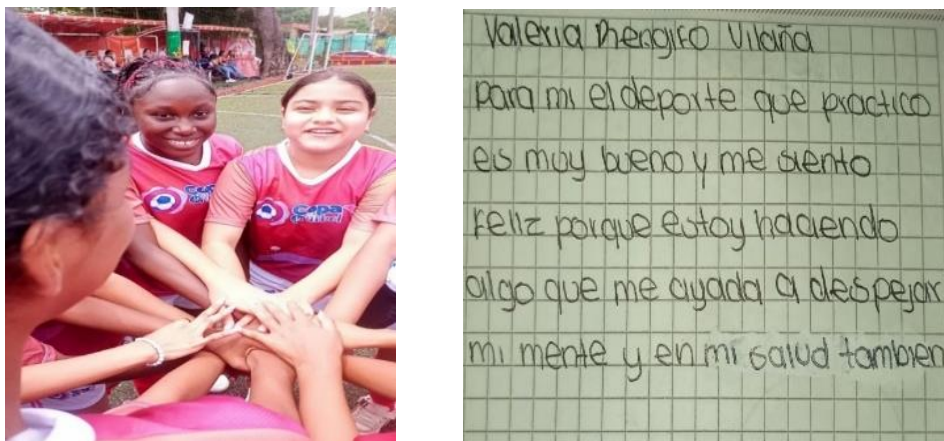 Copa
Copa
Valeria Rengifo Vilaña
para mi el deporte que practico
es muy bueno y me siento
Feliz porque estoy haciendo
algo que me ayada a despejar
mi mente y en mi salud tambien